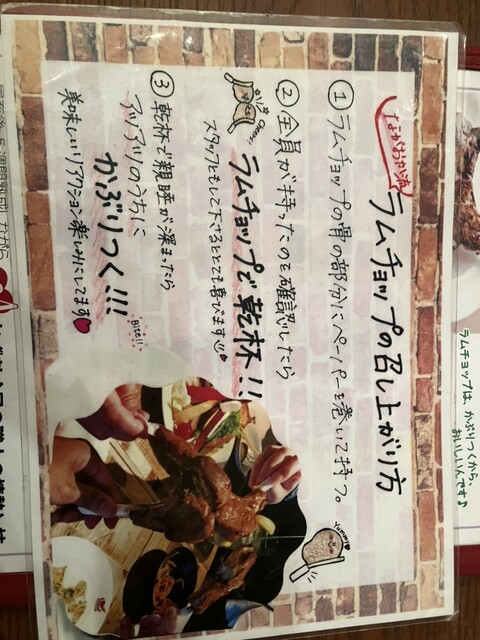 ながおかん流
ラムチョップの召し上がり方
① ラムチョップの骨の部分にペーパーを巻いて持つ。
② 全員が持ったのを確認したら
ラムチョップで乾杯!!
スタッフともして下さるととても喜びます
③ 乾杯で親睦が深まったら
アツアツのうちに
かぶりつく!!!
Bite!!
美味しいリアクション楽しみにしてます♥
ラムチョップは、かぶりつくから、
おいしいんです♪